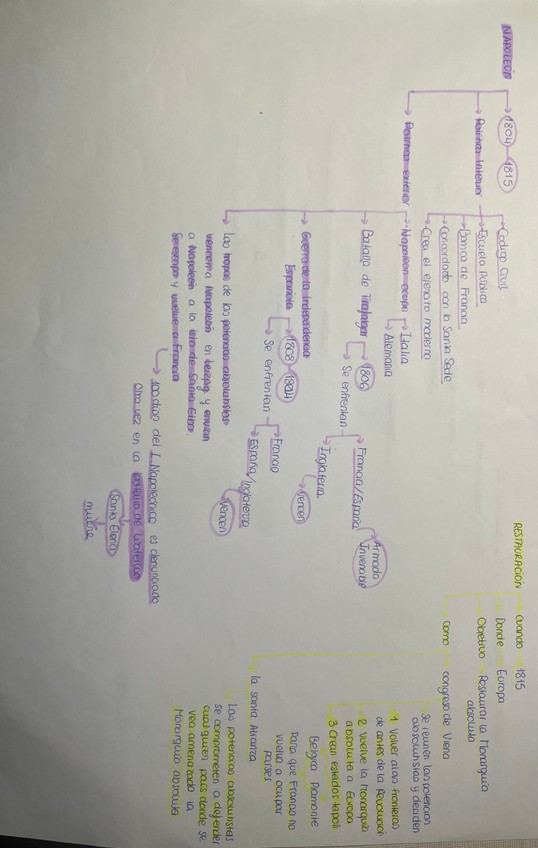 NAPOLEÓN
1804 → 1815
Política Interior
Codigo Civil
Escuela Pública
Banca de Francia
Concordato con la Santa Sede
Crea el ejercito moderno
Política exterior
Napoleón ocupa
Italia
Alemania
Batalla de Trafalgar
1806
Se enfrentan
Francia/España
Armada
Invencible
Inglaterra
vencen
Guerra de la Independencia
Española
1808 - 1804
Se enfrentan
Francia
España/Inglaterra
vencen
Las tropas de las potencias absolutistas
vencen a Napoleón en Leizpag y envian
a Napoleón a la isla de Santa Elba.
Se escapa y vuelve a Francia
100 días del I. Napoleónico es derrotado
Otra vez en la batalla de Waterloo
Santa Elena
muere
RESTAURACION
Cuando → 1815
Donde → Europa
Objetivo → Restaurar la Monarquía
absoluta
Como → congreso de Viena
Se reunen las potencias
absolutistas y deciden
1. Volver a las fronteras
de antes de la Revolución
2. Vuelve la Monarquía
absoluta a Europa
3 Crean estados tapón
Belgica Piamonte
Para que Francia no
vuelva a ocupar
países
la santa Alianza
Las potencias absolutistas
se comprometen a defender
cualquier país donde se
vea amenazado la
Monarquía absoluta